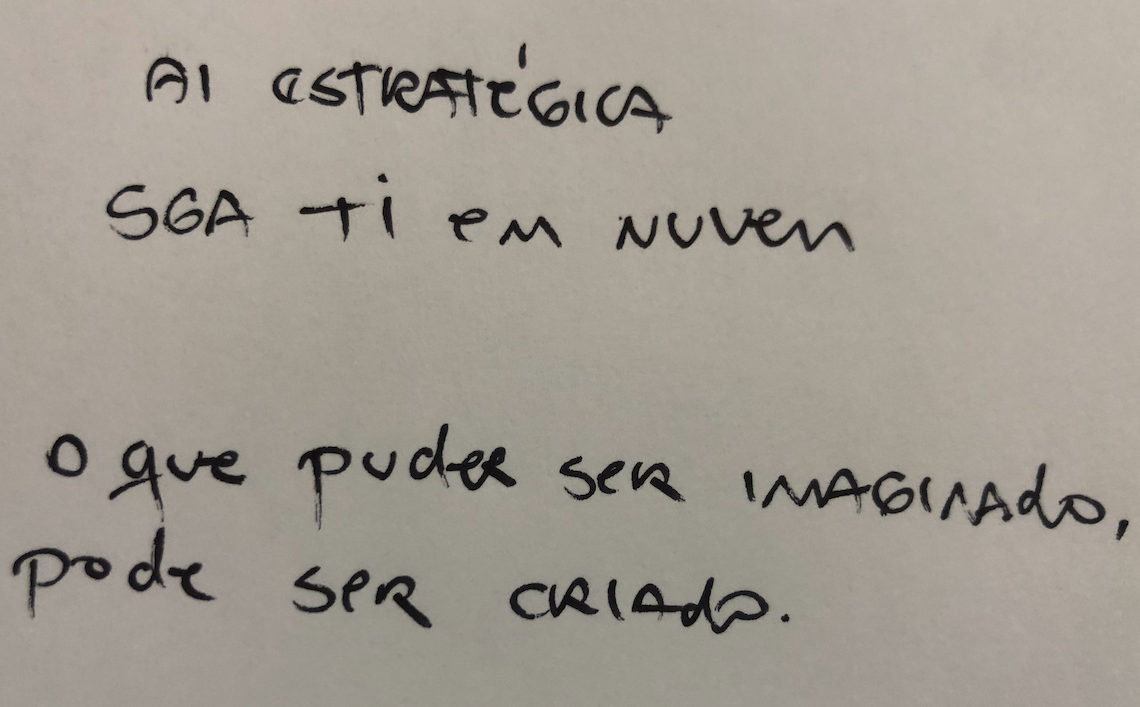 AI ESTRATÉGICA
SGA ti em NUVEN
O que puder ser IMAGINADO,
pode ser CRIADO.